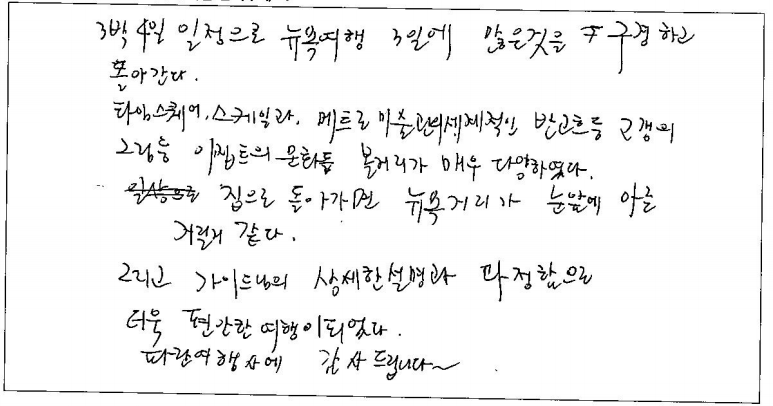 3박4일 일정으로 뉴욕여행 3일에 많은것을 구경하고
돌아간다.
타임스퀘어, 스케일과, 메트로 미술관의 세계적인 반고흐등 고갱의
그림등 이집트의 문화등 볼거리가 매우 다양하였다.
집으로 돌아가면 뉴욕거리가 눈앞에 아른
거릴거 같다.
그리고 가이드님의 상세한설명과 다정함으로
더욱 편안한 여행이되었다.
파란여행사에 감사드립니다~